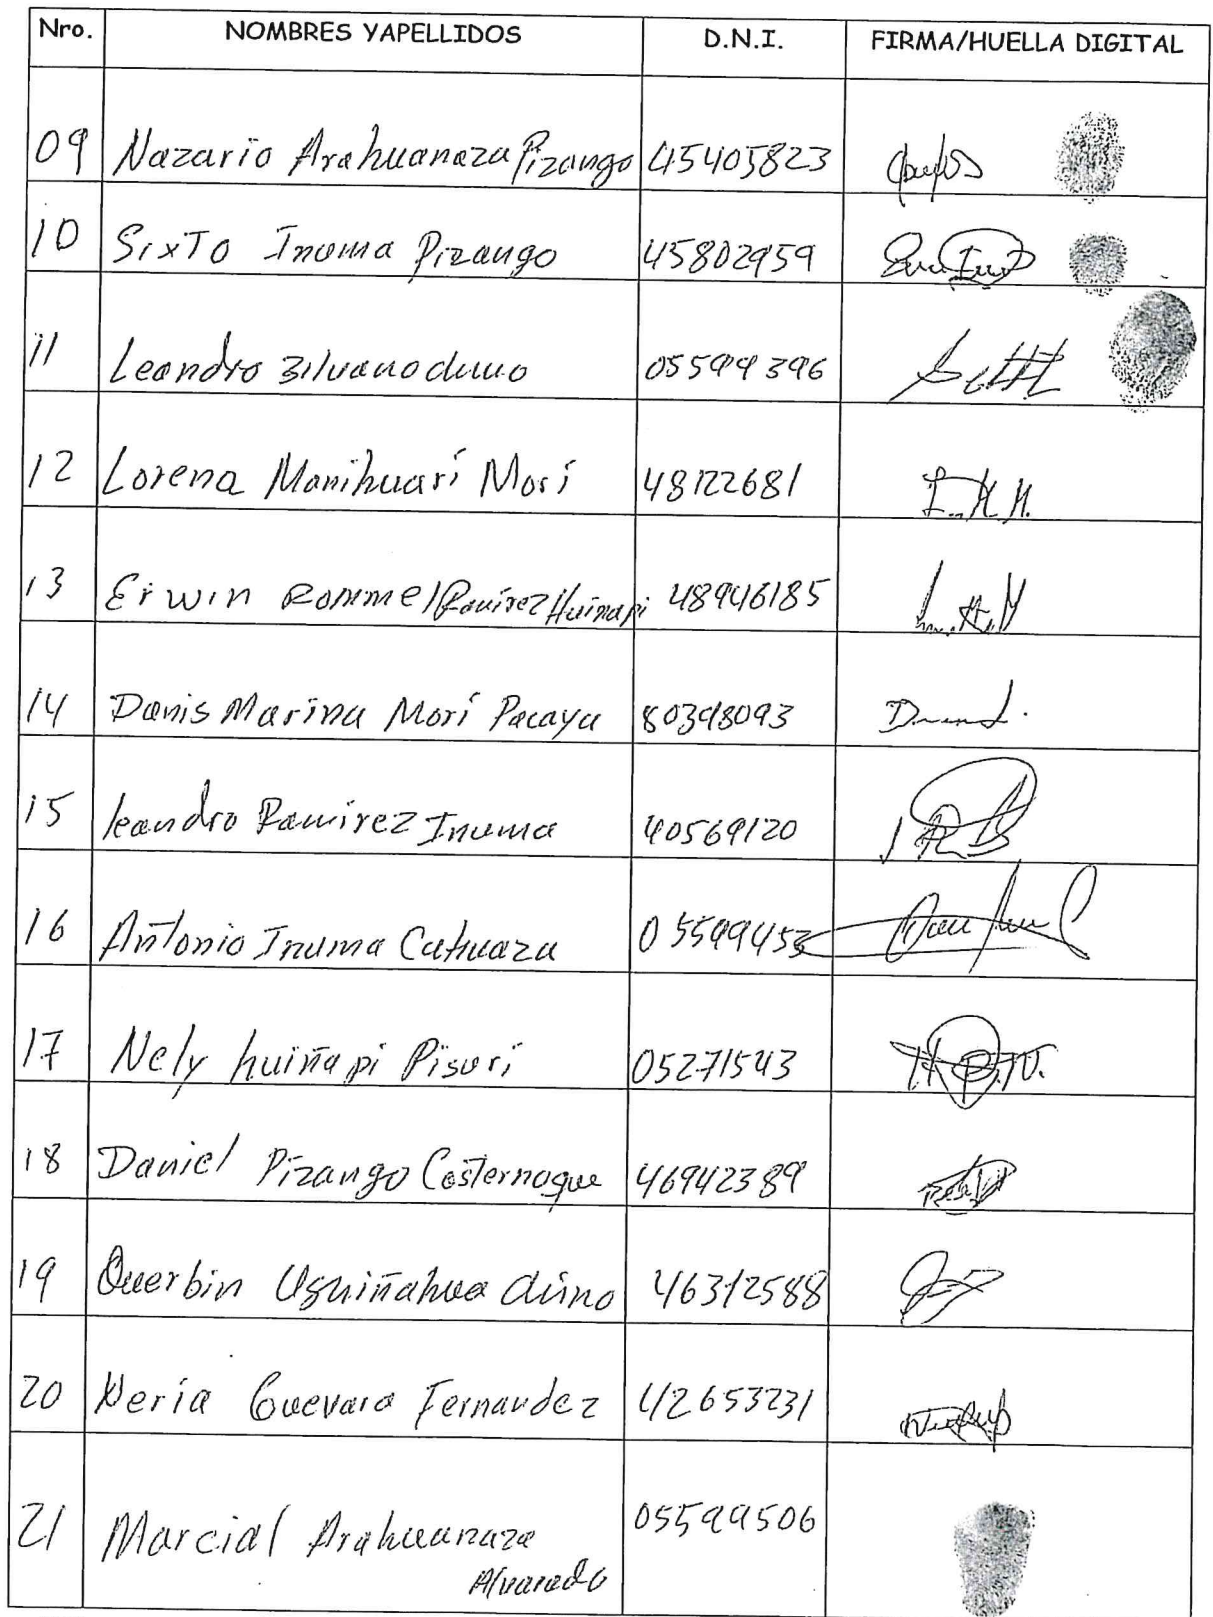 Nro. NOMBRES YAPELLIDOS D.N.I. FIRMA/HUELLA DIGITAL
09 Nazario Arahuanaza Pizango 45405823
10 SixTo Inuma Pizango 45802959
11 Leandro Silvano 05599396
12 Lorena Manihuarí Morí 48122681 L. M. M.
13 Erwin Rommel Ramírez Huiñapi 48946185
14 Danis Marina Morí Pacaya 80398093
15 leandro Ramírez Inuma 40569120
16 Antonio Inuma Cahuaza 05599453
17 Nely huiñapi Pisuri 05271543
18 Daniel Pizango Costernoque 46942389
19 Querbin Ushiñahua 46312588
20 Neria Guevara Fernandez 42653231
21 Marcial Arahuanaza 05599506
Alvarado